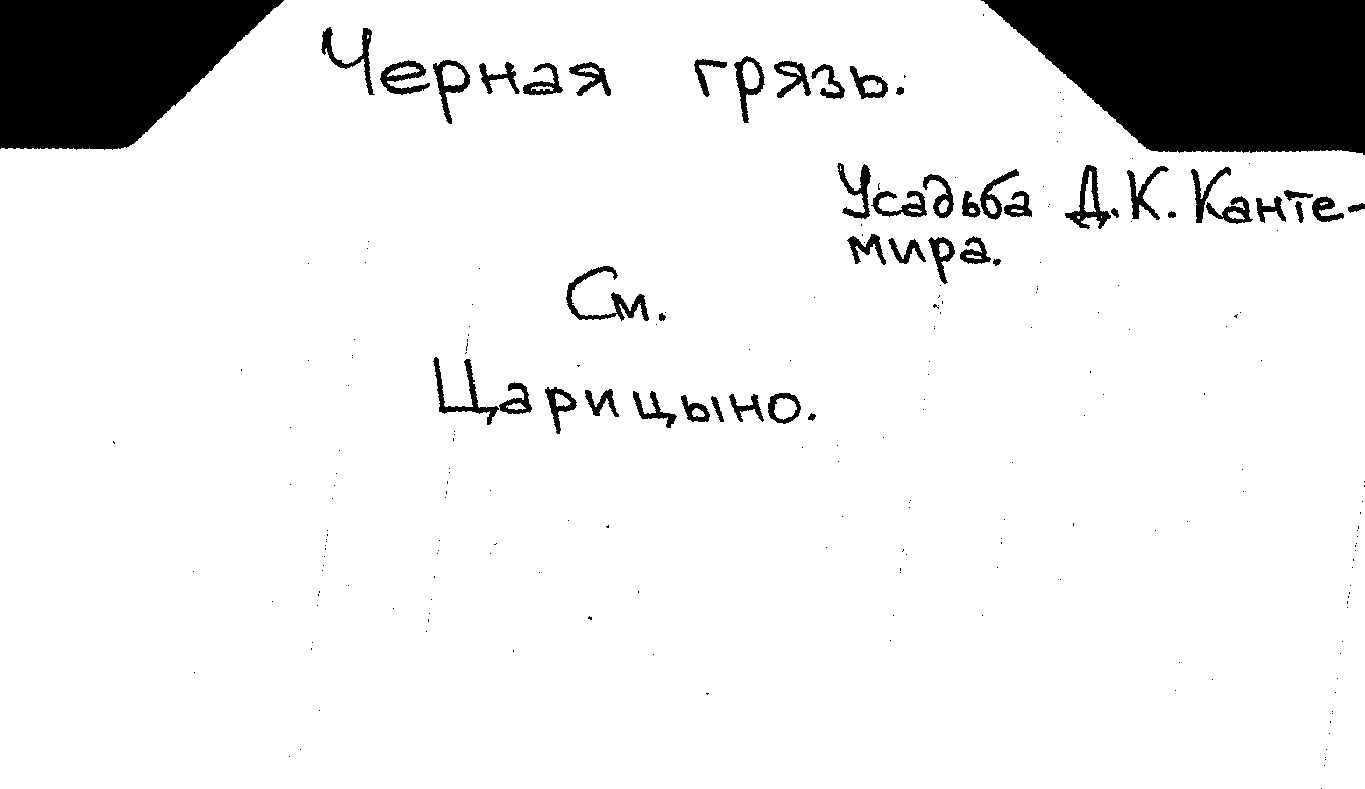 Черная грязь.
Усадьба Д.К. Канте-
мира.
См.
Царицыно.